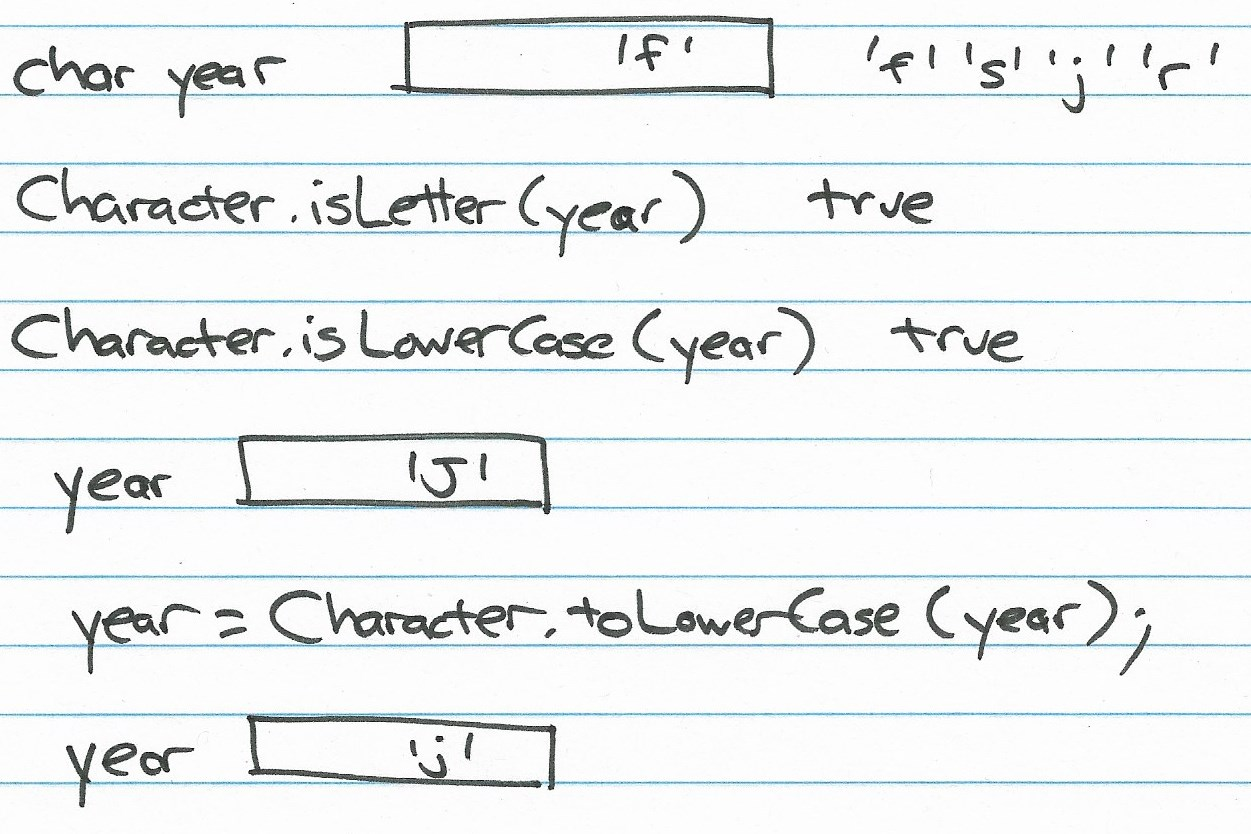 char year 'f' 'f' 's' 'j' 'r'
Character.isLetter(year) true
Character.isLowerCase(year) true
year 'J'
year = Character.toLowerCase(year);
year 'j'